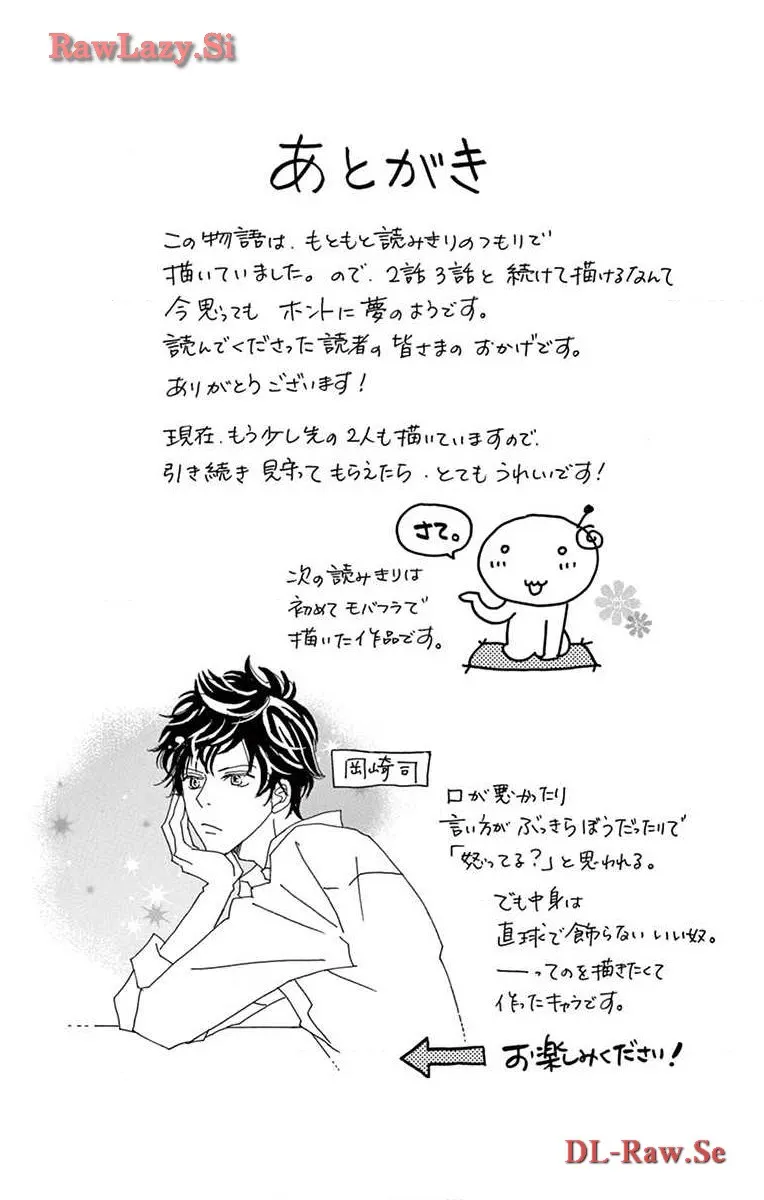 RawLazy.Si
あとがき
この物語は、もともと読みきりのつもりで
描いていました。ので、2話3話と続けて描けるなんて
今思っても ホントに夢のようです。
読んでくださった読者の皆さまの おかげです。
ありがとうございます!
現在、もう少し先の2人も描いていますので、
引き続き 見守って もらえたら、とても うれいです!
さて。
次の読みきりは
初めてモバフラで
描いた作品です。
岡崎司
口が悪かったり
言い方が ぶっきらぼうだったりで
「怒ってる?」と思われる。
でも中身は
直球で飾らない いい奴。
――ってのを描きたくて
作ったキャラです。
お楽しみください!
DL-Raw.Se